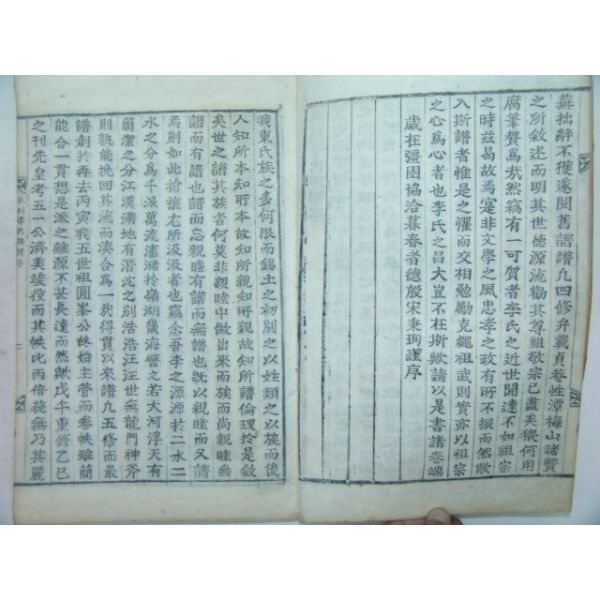 蕪拙辭不獲遂閱舊譜譜凡四修弁載貞菴性潭梅山諸賢
之所敘述而明其世德源流勸其尊祖敬宗已盡矣猥何用
腐筆贅爲哉然竊有一可賀者李氏之近世聞達不如祖宗
之時玆曷故焉寔非文學之風忠孝之政有所不振而然歟
入斯譜者惟是之懼而交相勉勵克繩祖武則實亦以祖宗
之心爲心者也李氏之昌大豈不在斯歟請以是書譜卷端
歲在彊圉協洽暮春者德殷宋秉珣謹序
我東氏族之多何限而錫土之初別之以姓類之以族而後
人知所本知所本故知所親知所親故知所譜倫理於是敘
矣世之譜其族者何莫非親睦中做出來而族而尚親睦無
譜而有譜也譜而忘親睦有譜而無譜也旣以親睦而又譜
焉則如此愴攘右所汲汲者也竊念吾李之源源於二水二
水之分爲千派萬流瀋瀦於嶺湖畿海譬之若大河浮天有
簡潔之分江漢滿地有潛沱之別浩浩汪汪世無龍門神斧
則孰能挽回其流而湊合爲一我得貫以來譜凡五修而最
譜創於再去丙寅我五世祖圓峯公終始主管而卷帙雖簡
能合一貫想是派之離源不甚長遠而然歟戊午重修乙巳
之刊先皇考五一公濟美竣役而其帙比丙倍蓰無乃其麗